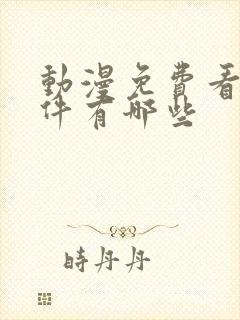 動漫免費看
件有哪些
時丹丹